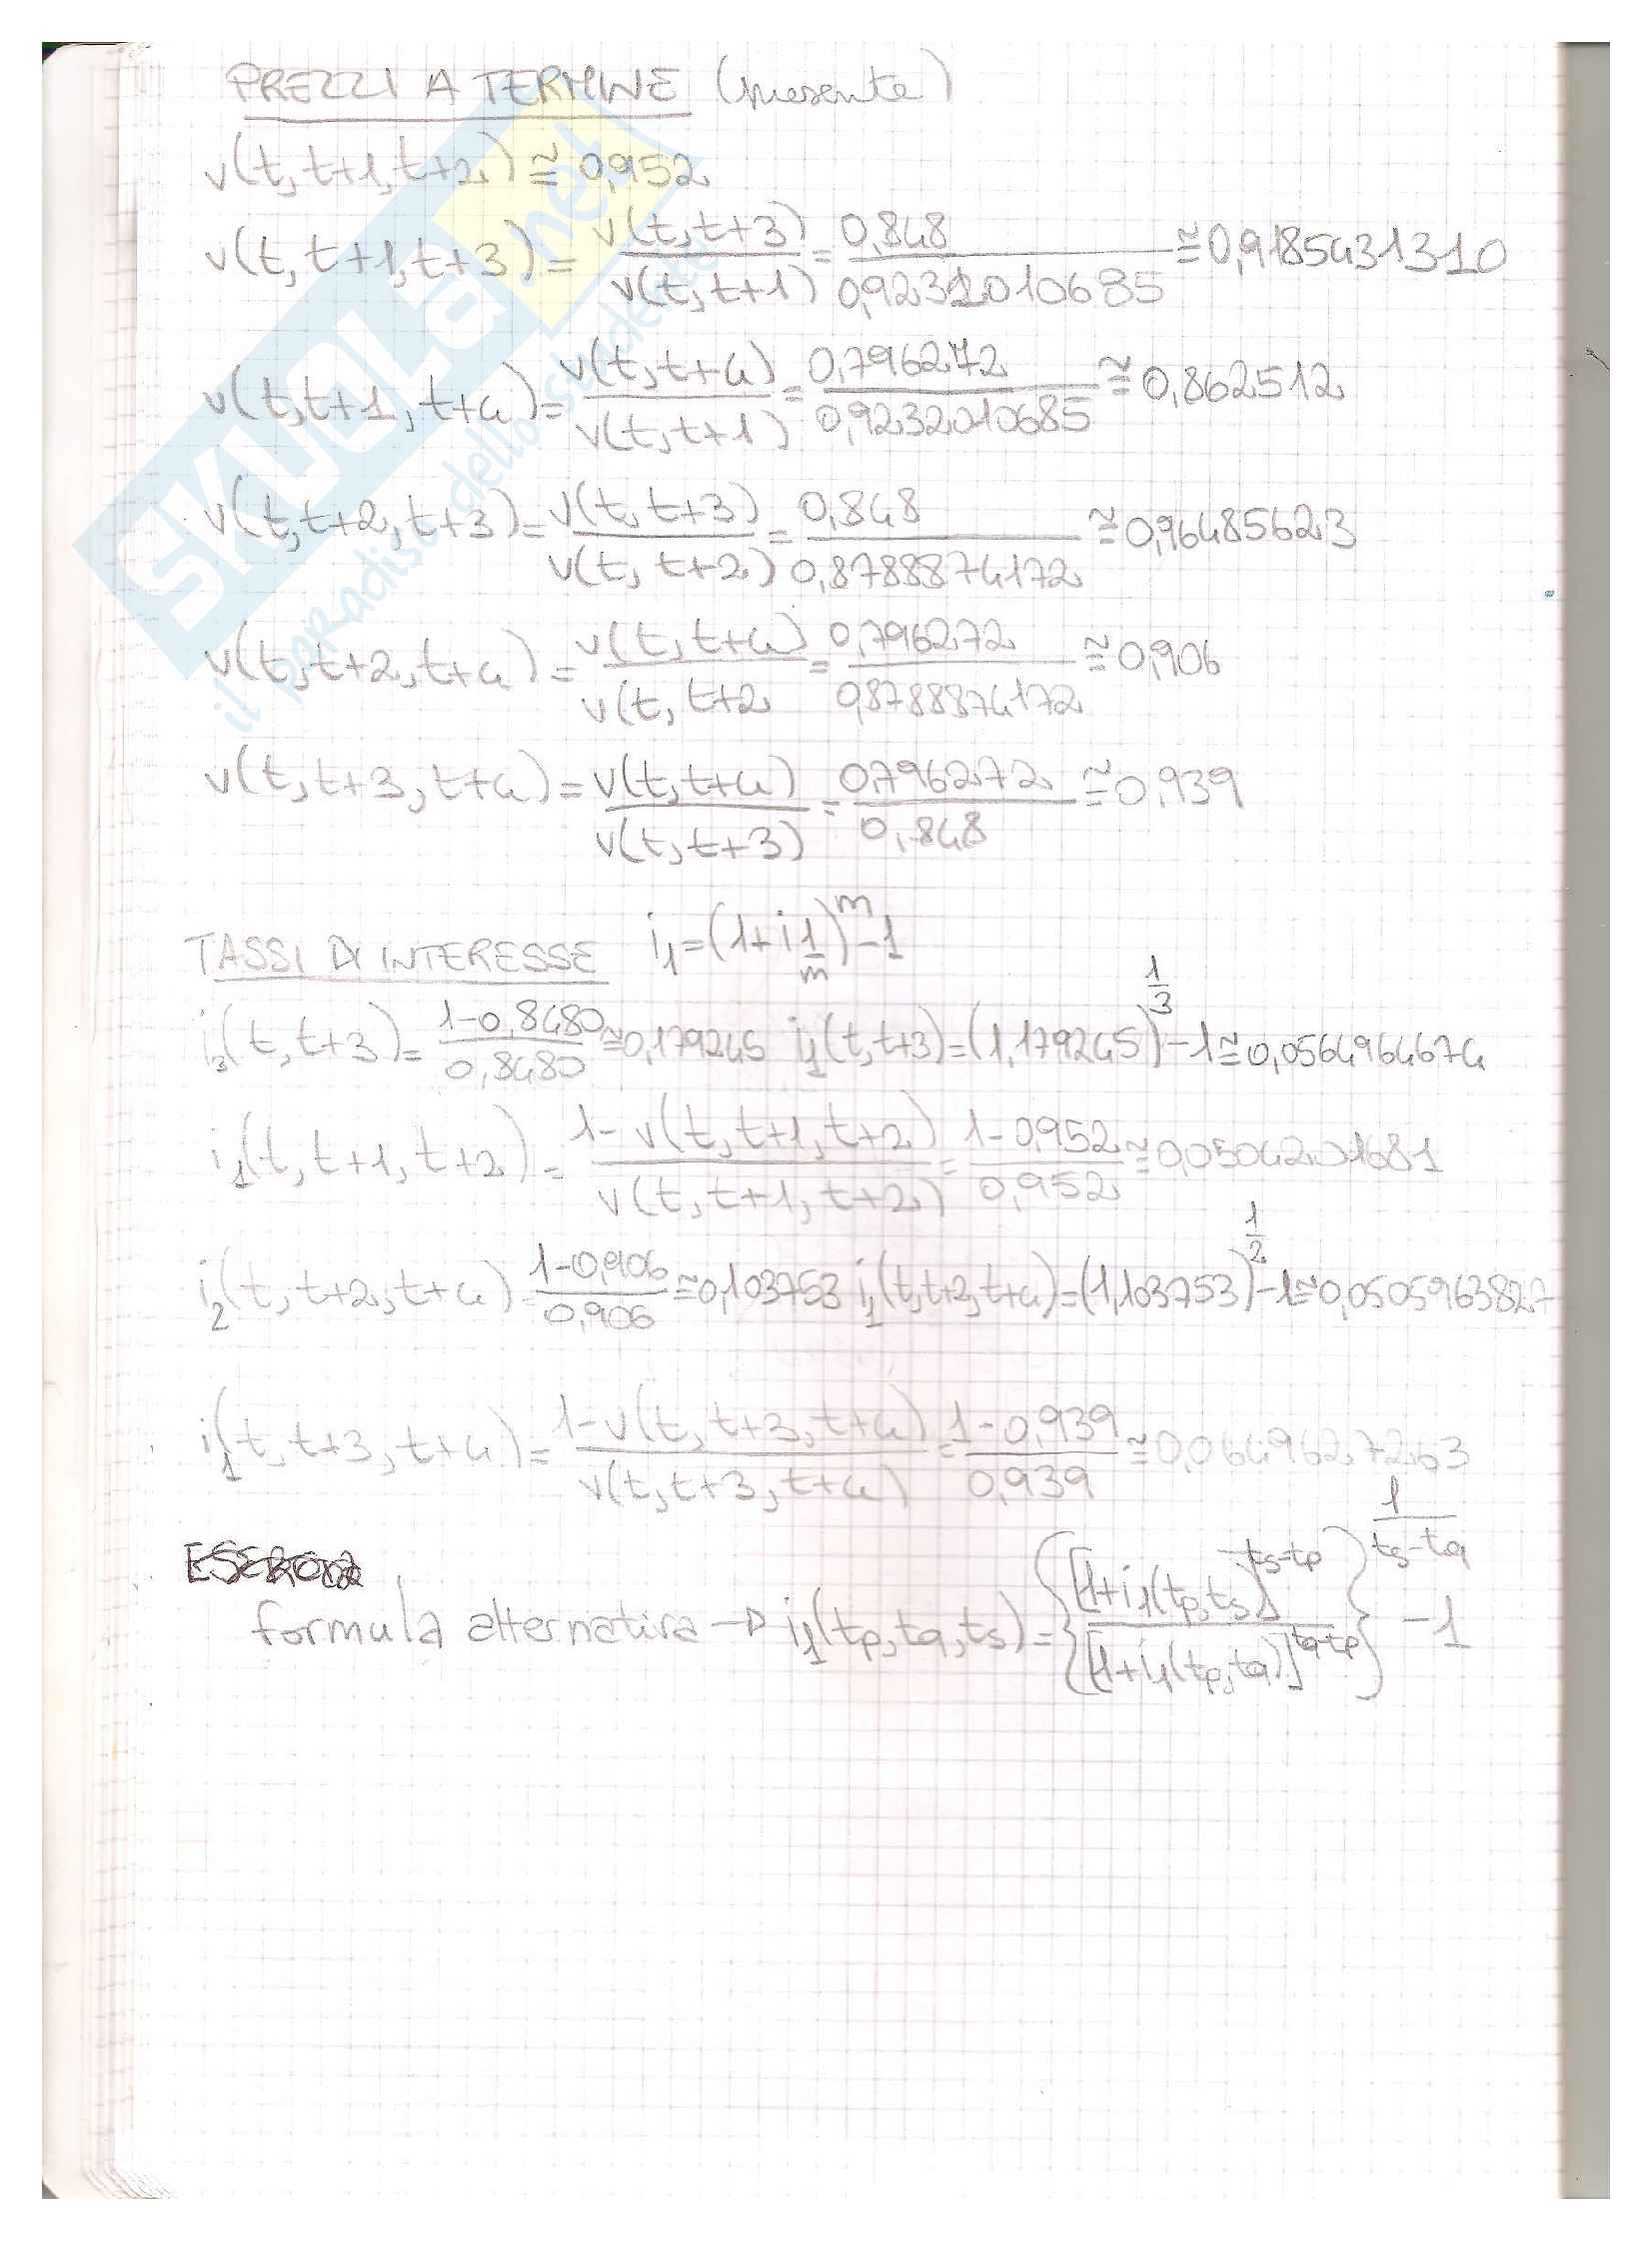 PREZZI A TERMINE (presente)
v(t, t+1, t+2) ≅ 0,952
v(t, t+1, t+3) = v(t, t+3) / v(t, t+1) = 0,848 / 0,9232010685 ≅ 0,9185431310
v(t, t+1, t+4) = v(t, t+4) / v(t, t+1) = 0,796272 / 0,9232010685 ≅ 0,862512
v(t, t+2, t+3) = v(t, t+3) / v(t, t+2) = 0,848 / 0,8788874172 ≅ 0,96485623
v(t, t+2, t+4) = v(t, t+4) / v(t, t+2 = 0,796272 / 0,8788874172 ≅ 0,906
v(t, t+3, t+4) = v(t, t+4) / v(t, t+3) = 0,796272 / 0,848 ≅ 0,939
TASSI DI INTERESSE i₁ = (1 + i 1/m)^m - 1
i₃(t, t+3) = 1-0,8480 / 0,8480 ≅ 0,179245 i₁(t, t+3) = (1,179245)^1/3 - 1 ≅ 0,0564964674
i₁(t, t+1, t+2) = 1 - v(t, t+1, t+2) / v(t, t+1, t+2) = 1 - 0,952 / 0,952 ≅ 0,0504201681
i₂(t, t+2, t+4) = 1-0,906 / 0,906 ≅ 0,103753 i₁(t, t+2, t+4) = (1,103753)^1/2 - 1 ≅ 0,0505963827
i₁(t, t+3, t+4) = 1 - v(t, t+3, t+4) / v(t, t+3, t+4) = 1 - 0,939 / 0,939 ≅ 0,0649627263
formula alternativa → i₁(tp, tq, ts) = {[1+i₁(tp, ts)]^ts-tp / [1+i₁(tp, tq)]^tq-tp}^1/ts-tq - 1
SKUOLA.net
il paradiso dello studente